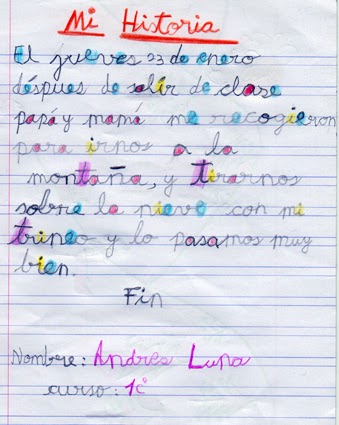 Mi Historia
El jueves 23 de enero
déspues de salir de clase
papá y mamá me recogieron
para irnos a la
montaña, y tirarnos
sobre la nieve con mi
trineo y lo pasamos muy
bien.
Fin
Nombre: Andres Luna
curso: 1c